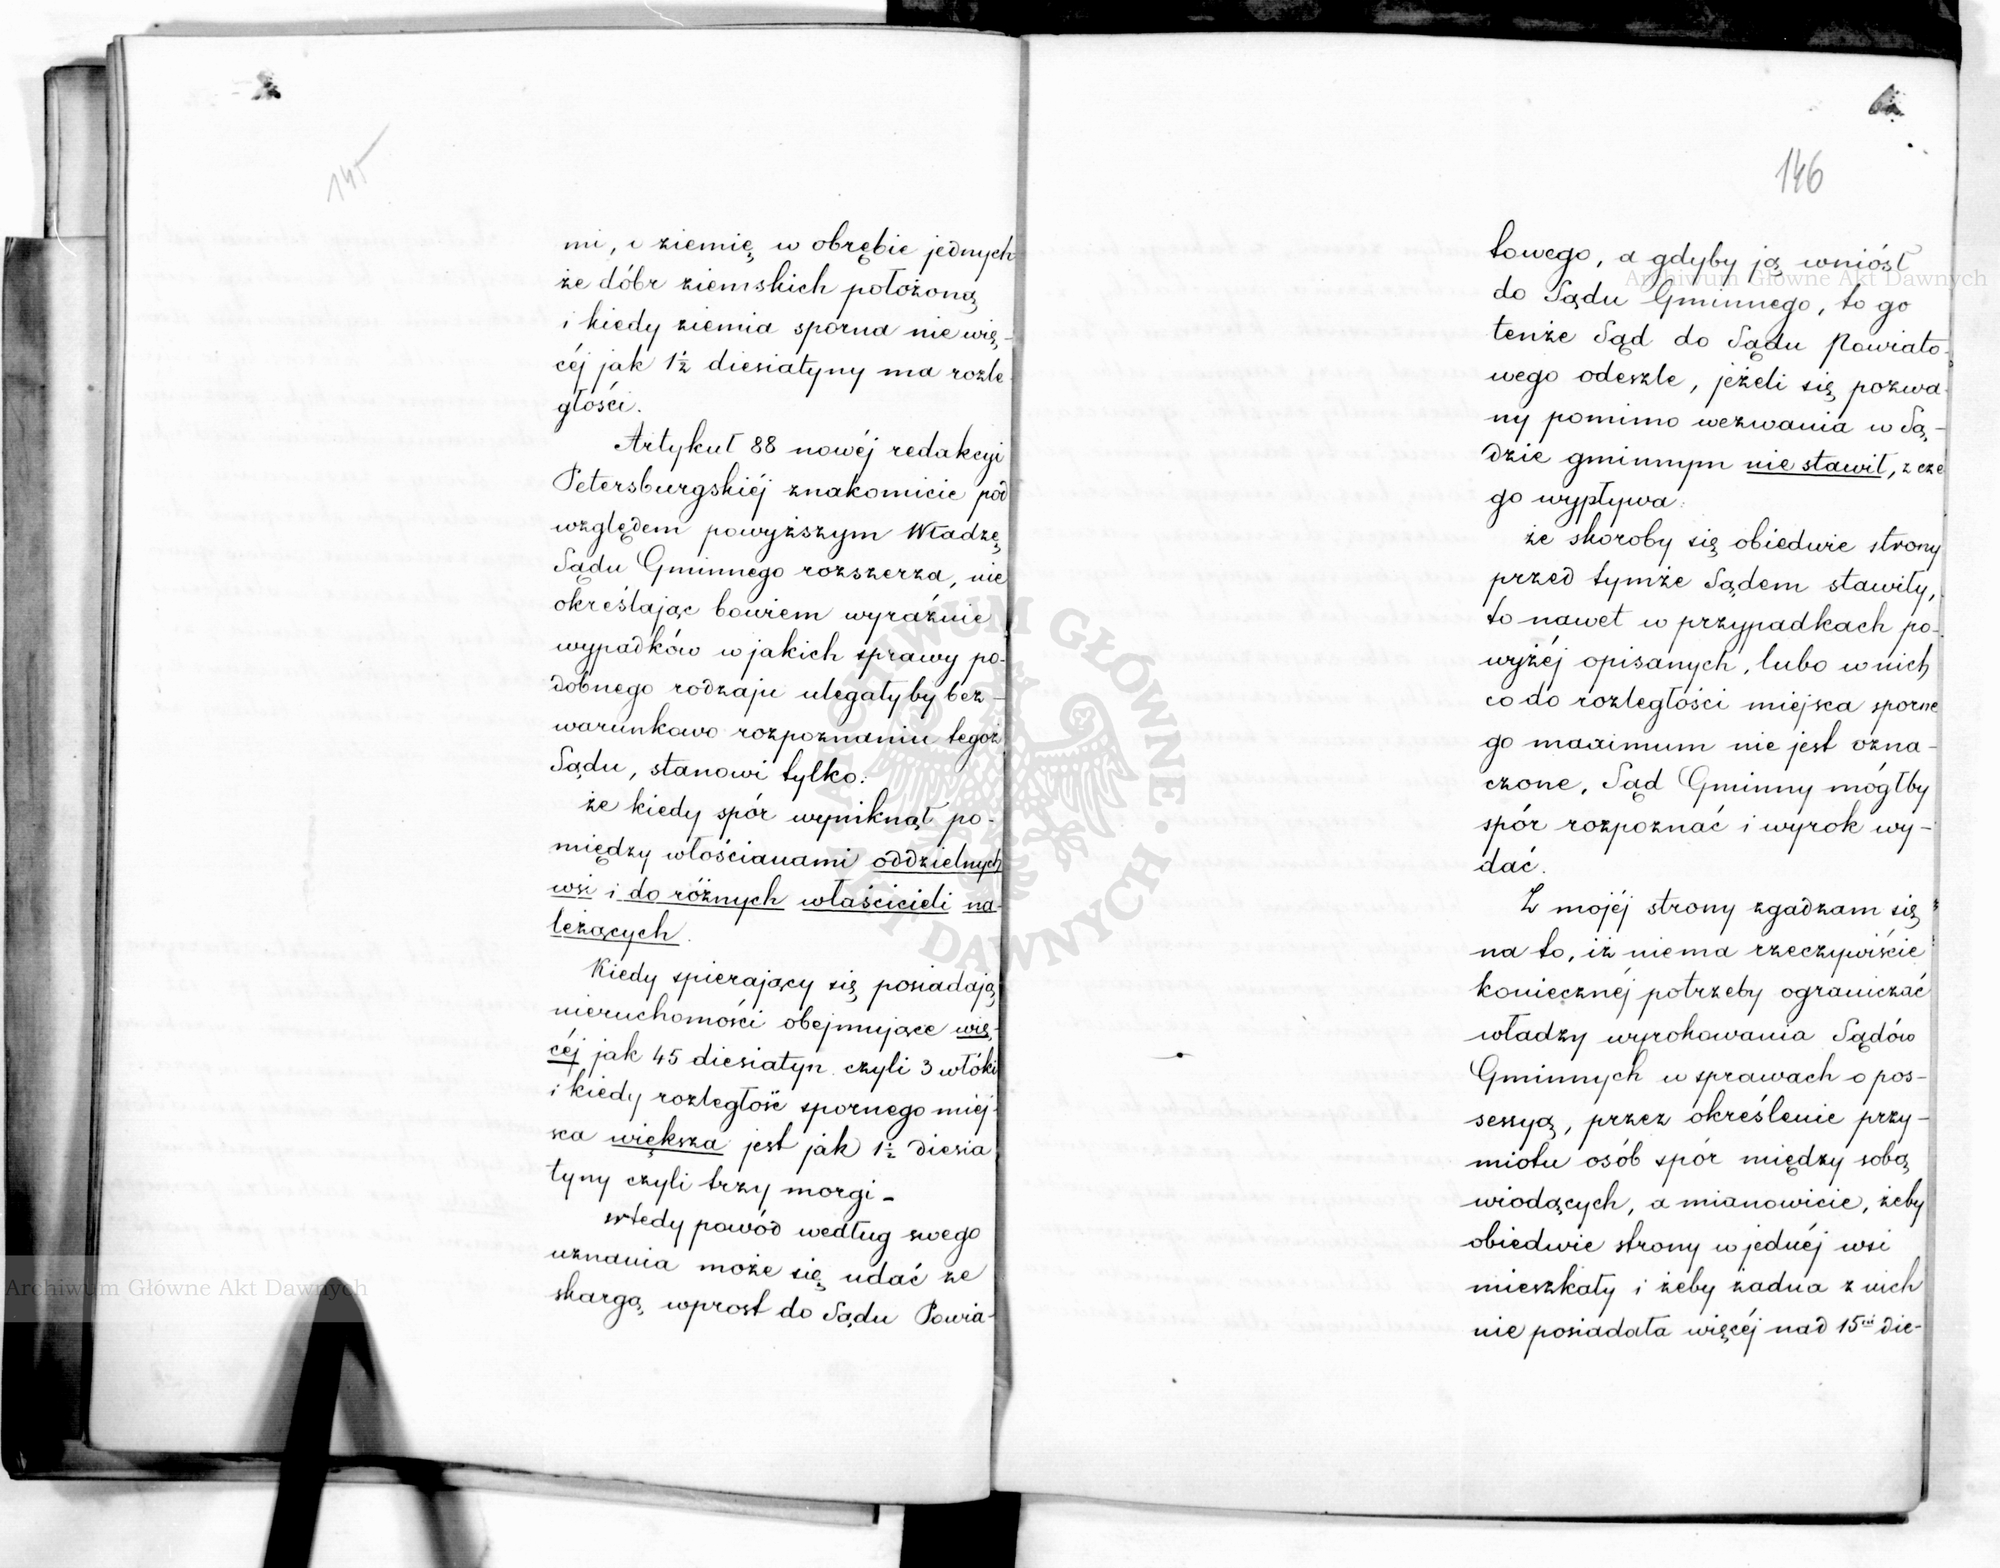 145
mi, i ziemię w obrębie jednych
że dóbr ziemskich położoną
i kiedy ziemia sporna nie wię-
céj jak 1½ diesiatyny ma rozle-
głości.
Artykuł 88 nowéj redakcyi
Petersburgskiéj znakomicie pod
względem powyższym Władzę
Sądu Gminnego rozszerza, nie
określając bowiem wyraźnie
wypadków w jakich sprawy po-
dobnego rodzaju ulegałyby bez-
warunkowo rozpoznaniu tegoż
Sądu, stanowi tylko:
że kiedy spór wyniknął po-
między włościanami oddzielnych
wsi i do różnych właścicieli na-
leżących.
Kiedy spierający się posiadają
nieruchomości obejmujące wię-
céj jak 45 diesiatyn czyli 3 włóki
i kiedy rozległość spornego miej-
sca większa jest jak 1½ diesia
tyny czyli trzy morgi -
wtedy powód według swego
uznania może się udać ze
skargą wprost do Sądu Powia-
146
towego, a gdyby ją wniósł
do Sądu Gminnego, to go
tenże Sąd do Sądu Powiato-
wego odeszle, jeżeli się pozwa-
ny pomimo wezwania w Są-
dzie gminnym nie stawił, z cze
go wypływa:
że skoroby się obiedwie strony
przed tymże Sądem stawiły,
to nawet w przypadkach po-
wyżéj opisanych, lubo w nich
co do rozległości miejsca sporne
go maximum nie jest ozna-
czone, Sąd Gminny mógłby
spór rozpoznać i wyrok wy-
dać.
Z mojéj strony zgadzam się
na to, iż niema rzeczywiście
koniecznéj potrzeby ograniczać
władzy wyrokowania Sądów
Gminnych w sprawach o pos-
sessyą, przez określenie przy-
miotu osób spór między sobą
wiodących, a mianowicie, żeby
obiedwie strony w jednéj wsi
mieszkały i żeby żadna z nich
nie posiadała więcéj nad 15ⁱᵉ die-
Archiwum Główne Akt Dawnych
Archiwum Główne Akt Dawnych
ARCHIWUM GŁÓWNE · AKT DAWNYCH ·